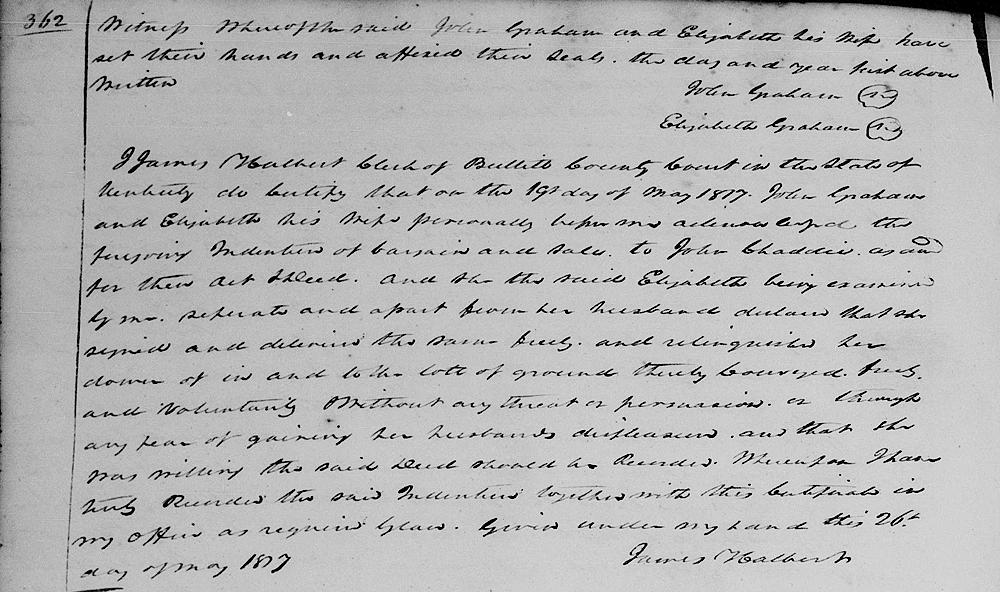 362
Witness Whereof the said John Graham and Elizabeth his Wife have
set their hands and affixed their seals. the day and year first above
Written
John Graham
Elizabeth Graham
I James Halbert Clerk of Bullitt County Court in the State of
Kentucky do Certify that on the 19th day of May 1817. John Graham
and Elizabeth his Wife personally before me acknowledged the
foregoing Indenture of bargain and sale. to John Chaddic. as and
for their act & Deed. and she the said Elizabeth being examined
by me. seperate and apart from her husband declare that she
signed and delivered the same freely. and relinquished her
dower of in and to the lott of ground thereby Conveyed. freely.
and Voluntarily Without any threat or persuasion. or through
any fear of gaining her husbands displeasure. and that she
was willing the said Deed should be Recorded. Whereupon I have
truly Recorded the said Indenture together with this Certificate in
my office as required by law. Given under my hand this 26th
day of May 1817
James Halbert